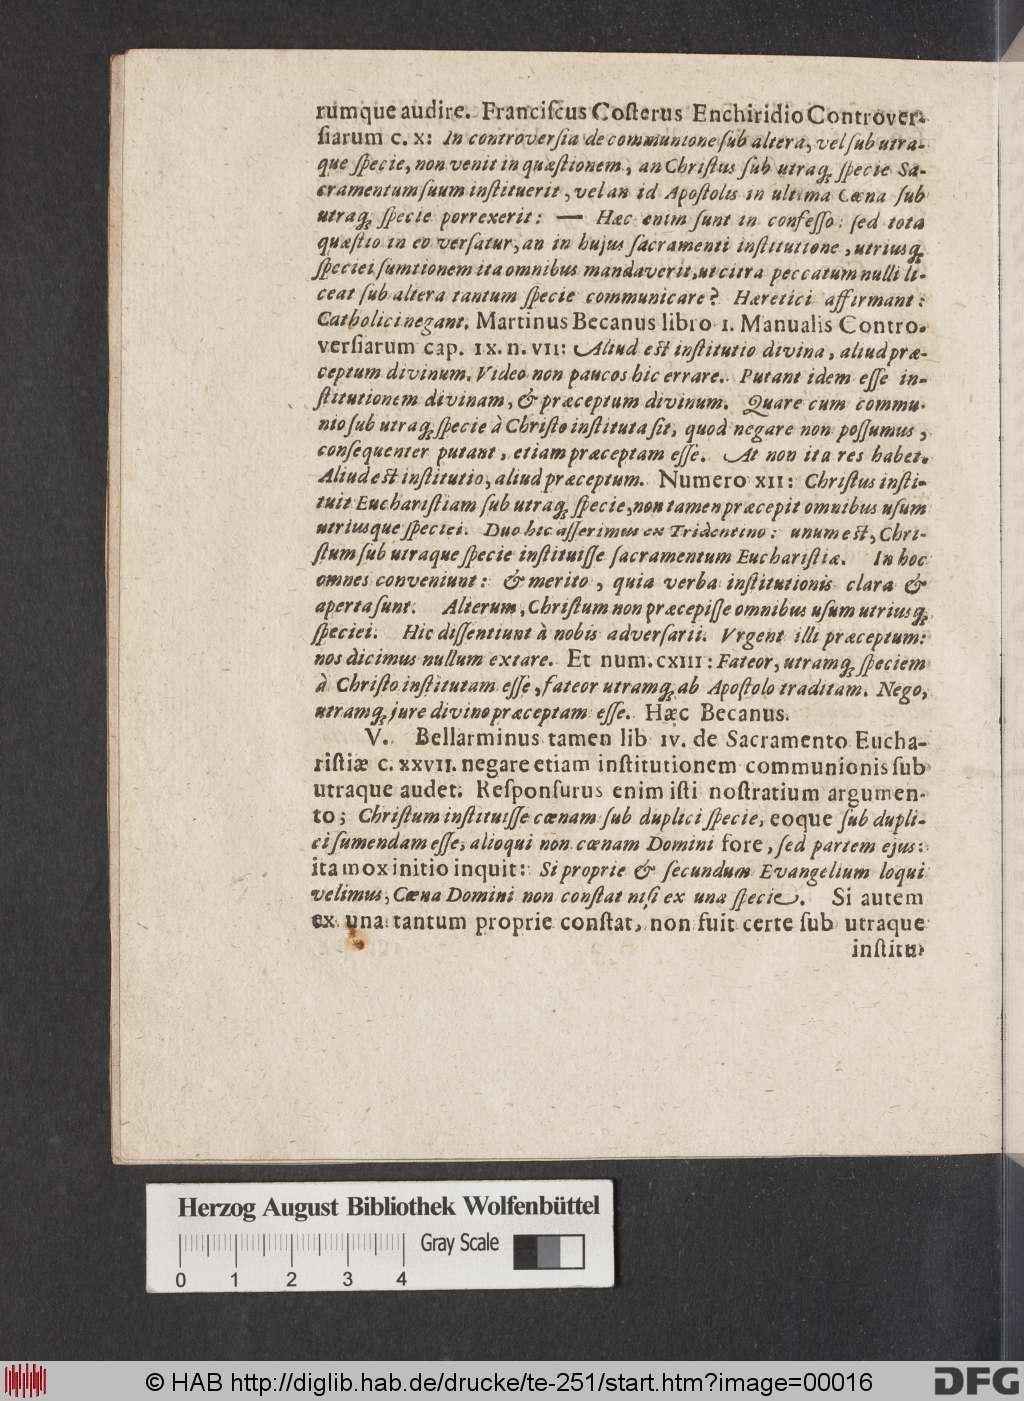 rumque audire. Franciſcus Coſterus Enchiridio Controver-
ſiarum c. x: In controverſia de communione ſub altera, vel ſub utra-
que ſpecie, non venit in quæſtionem, an Chriſtus ſub utraq; ſpecie Sa-
cramentum ſuum inſtituerit, vel an id Apoſtolis in ultima Cœna ſub
utraq; ſpecie porrexerit: — Hæc enim ſunt in confeſſo: ſed tota
quæſtio in eo verſatur, an in hujus ſacramenti inſtitutione, utriusq;
ſpeciei ſumtionem ita omnibus mandaverit, ut citra peccatum nulli li-
ceat ſub altera tantum ſpecie communicare? Hæretici affirmant:
Catholici negant. Martinus Becanus libro 1. Manualis Contro-
verſiarum cap. IX. n. VII: Aliud est inſtitutio divina, aliud præ-
ceptum divinum. Video non paucos hic errare. Putant idem eſſe in-
ſtitutionem divinam, & præceptum divinum. Quare cum commu-
nio ſub utraq; ſpecie à Chriſto inſtituta ſit, quod negare non poſſumus,
conſequenter putant, etiam præceptam eſſe. At non ita res habet.
Aliud est inſtitutio, aliud præceptum. Numero XII: Chriſtus inſti-
tuit Euchariſtiam ſub utraq; ſpecie, non tamen præcepit omnibus uſum
utriusque ſpeciei. Duo hic aſſerimus ex Tridentino: unum est, Chri-
ſtum ſub utraque ſpecie inſtituiſſe ſacramentum Euchariſtiæ. In hoc
omnes conveniunt: & merito, quia verba inſtitutionis clara &
aperta ſunt. Alterum, Chriſtum non præcepiſſe omnibus uſum utriusq;
ſpeciei. Hic diſſentiunt à nobis adverſarii. Vrgent illi præceptum:
nos dicimus nullum extare. Et num. CXIII: Fateor, utramq; ſpeciem
à Chriſto inſtitutam eſſe, fateor utramq; ab Apoſtolo traditam. Nego,
utramq; jure divino præceptam eſſe. Hæc Becanus.
V. Bellarminus tamen lib IV. de Sacramento Eucha-
riſtiæ c. XXVII. negare etiam inſtitutionem communionis ſub
utraque audet. Reſponſurus enim iſti noſtratium argumen-
to; Chriſtum inſtituiſſe cœnam ſub duplici ſpecie, eoque ſub dupli-
ci ſumendam eſſe, alioqui non cœnam Domini fore, ſed partem ejus:
ita mox initio inquit: Si proprie & ſecundum Evangelium loqui
velimus, Cœna Domini non conſtat niſi ex una ſpecie. Si autem
ex una tantum proprie conſtat, non fuit certe ſub utraque
inſtitu-
Herzog August Bibliothek Wolfenbüttel
Gray Scale
0 1 2 3 4
© HAB http://diglib.hab.de/drucke/te-251/start.htm?image=00016
DFG